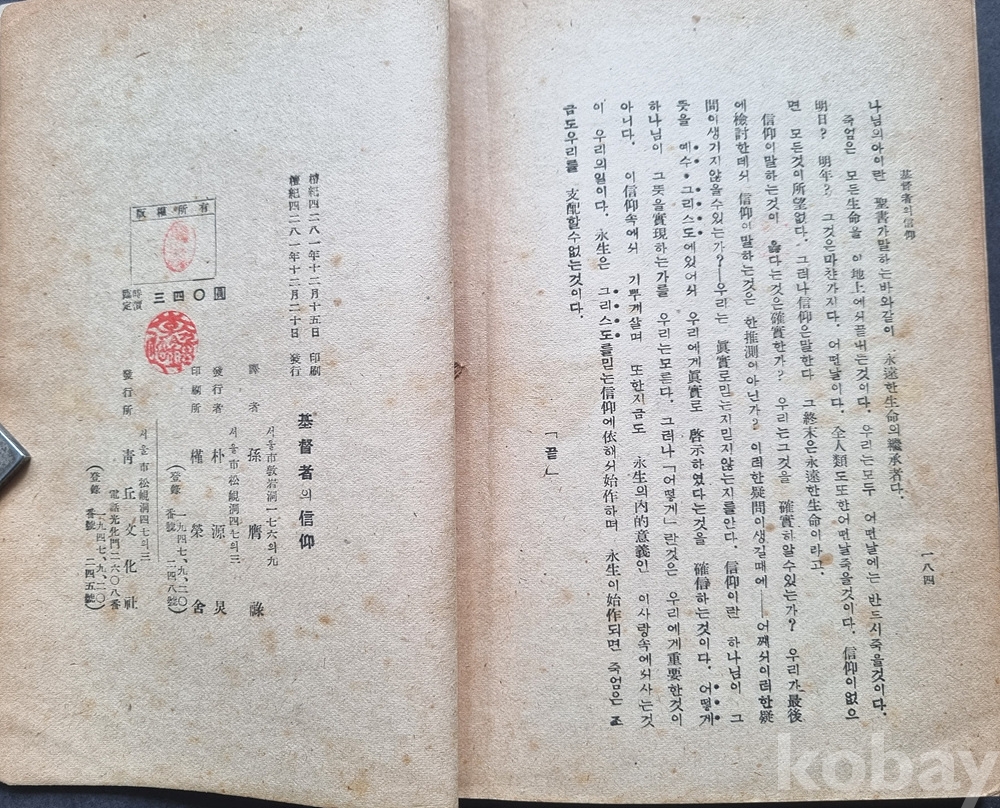 基督者의信仰
一八四
나님의아이란 聖書가말하는바와같이 永遠한生命의繼承者다.
죽엄은 모든生命을 이地上에서끝내는것이다. 우리는모두 어떤날에는 반드시죽을것이다.
明日? 明年? 그것은마찬가지다. 어떤날이다. 全人類도또한어떤날죽을것이다. 信仰이없으
면 모든것이所望없다. 그러나信仰은말한다 그終末은永遠한生命이라고.
信仰이말하는것이 옳다는것은確實한가? 우리는그것을 確實히알수있는가? 우리가最後
에檢討한데서 信仰이말하는것은 한推測이아닌가? 이러한疑問이생길때에——어째서이러한疑
問이생기지않을수있는가?—우리는 眞實로믿는지믿지않는지를안다. 信仰이란 하나님이 그
뜻을 예수·그리스도에있어서 우리에게眞實로 啓示하였다는것을 確信하는것이다. 어떻게
하나님이 그뜻을實現하는가를 우리는모른다. 그러나「어떻게」란것은 우리에게重要한것이
아니다. 이信仰속에서 기뿌게살며 또한지금도 永生의內的意義인 이사랑속에서사는것
이 우리의일이다. 永生은 그리스도를믿는信仰에依해서始作하며 永生이始作되면 죽엄은 조
금도우리를 支配할수없는것이다.
「끝」
基督者의信仰
檀紀四二八一年十二月十五日 印刷
檀紀四二八一年十二月二十日 發行
서울市敦岩洞一七六의九
譯者 孫
서울市松峴洞四七의三
發行者 朴源炅
印刷所 槿榮舍
(登錄 一九四七、九、二〇 番號 二四八號)
서울市松峴洞四七의三
發行所 靑丘文化社
電話光化門二六〇八番
(登錄 一九四七、九、二〇 番號 二四五號)
版權所有
臨時定價 三四〇圓
kobay